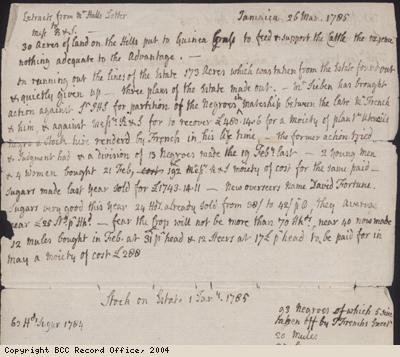 Extracts from Mr Halls Letter
Jamaica 26 Mar. 1785
Messrs B & S. —
30 Acres of land on the Hills put to Guinea Grass to feed & support the Cattle the expence
nothing adequate to the Advantage. —
In running out the lines of the Estate 173 Acres which was taken from the Estate found out
& quietly given up — three plans of the Estate made out. — Mr Fieben has brought
action against for partition of the Negroes between the late Mr French
& him, & against Messrs B & S for to recover £480.14.6 for a moiety of plann. utensils
Negro & Stock hire renderd by French in his life time — the former action tryed
& Judgment had & a division of 13 Negroes made the 19 Feby last — 2 young men
& 4 Women bought 21 Feby cost 392 & S moiety of cost for the same paid —
Sugars made last year sold for £1743.14.11 — New overseers name David Fortune.
Sugars very good this year 24 Hds. already Sold from 38/ to 42/ p C, they Average
near £25 St. p Hd. — fear the Crop will not be more than 70 Hds, near 40 now made
12 Mules bought in Feb. at 31 p head & 12 Steers at 17£ p head to be paid for in
May a moiety of cost £288
Stock on Estate 1 Jany. 1785
63 Hds Sugar 1784
93 Negroes of which 5 since
taken off by Frenchs Execrs
20 Mules
Copyright BCC Record Office, 2004